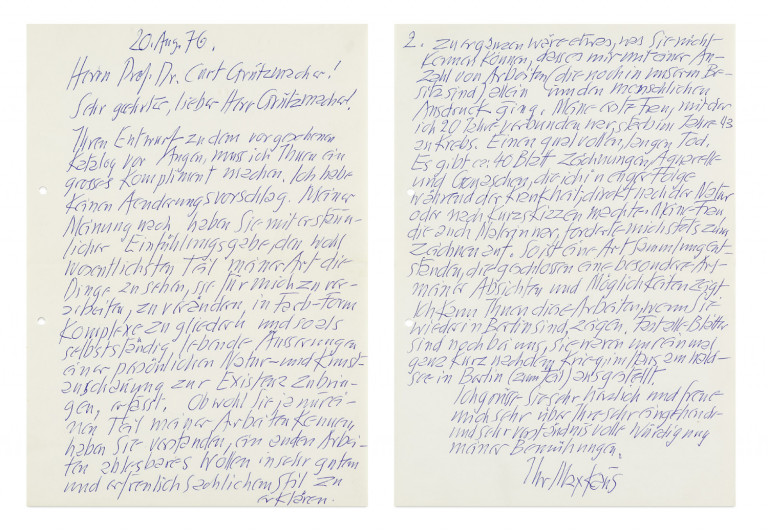 20. Aug. 76.
Herrn Prof. Dr. Curt Grützmacher!
Sehr geehrter, lieber Herr Grützmacher!
Ihren Entwurf zu dem vorgesehenen
Katalog vor Augen, muss ich Ihnen ein
grosses Kompliment machen. Ich habe
keinen Aenderungsvorschlag. Meiner
Meinung nach haben Sie mit erstaun-
licher Einfühlungsgabe, den wohl
wesentlichsten Teil meiner Art die
Dinge zu sehen, sie für mich zu ver-
arbeiten, zu verändern, in Farb-Form
Komplexe zu gliedern und so als
selbstständig, lebende Äusserungen
einer persönlichen Natur- und Kunst-
anschauung zur Existenz zu brin-
gen, erfasst. Obwohl Sie ja nur ei-
nen Teil meiner Arbeiten kennen,
haben Sie verstanden, ein an den Arbei-
ten ablesbares Wollen in sehr gutem
und erfreulich sachlichem Stil zu
erklären.
2. Zu ergänzen wäre etwas, was Sie nicht
kennen können, dass es mir mit einer An-
zahl von Arbeiten, die noch in unserem Be-
sitz sind, allein um den menschlichen
Ausdruck ging. Meine erste Frau, mit der
ich 20 Jahre verbunden war, starb im Jahre 43
an Krebs. Einen qualvollen, langen Tod.
Es gibt ca. 40 Blatt Zeichnungen, Aquarelle
und Gouaschen, die ich in enger Folge
während der Krankheit, direkt nach der Natur
oder nach Kurzskizzen machte. Meine Frau,
die auch Malerin war, forderte mich stets zum
Zeichnen auf. So ist eine Art Sammlung ent-
standen, die geschlossen eine besondere Art
meiner Absichten und Möglichkeiten zeigt.
Ich kann Ihnen diese Arbeiten, wenn Sie
wieder in Berlin sind, zeigen. Fast alle Blätter
sind noch bei uns, sie waren nur einmal
ganz kurz nach dem Krieg im Haus am Wald-
see in Berlin (zum Teil) ausgestellt.
Ich grüsse Sie sehr herzlich und freue
mich sehr über Ihre sehr eingehende
und sehr verständnisvolle Würdigung
meiner Bemühungen.
Ihr Max Kaus